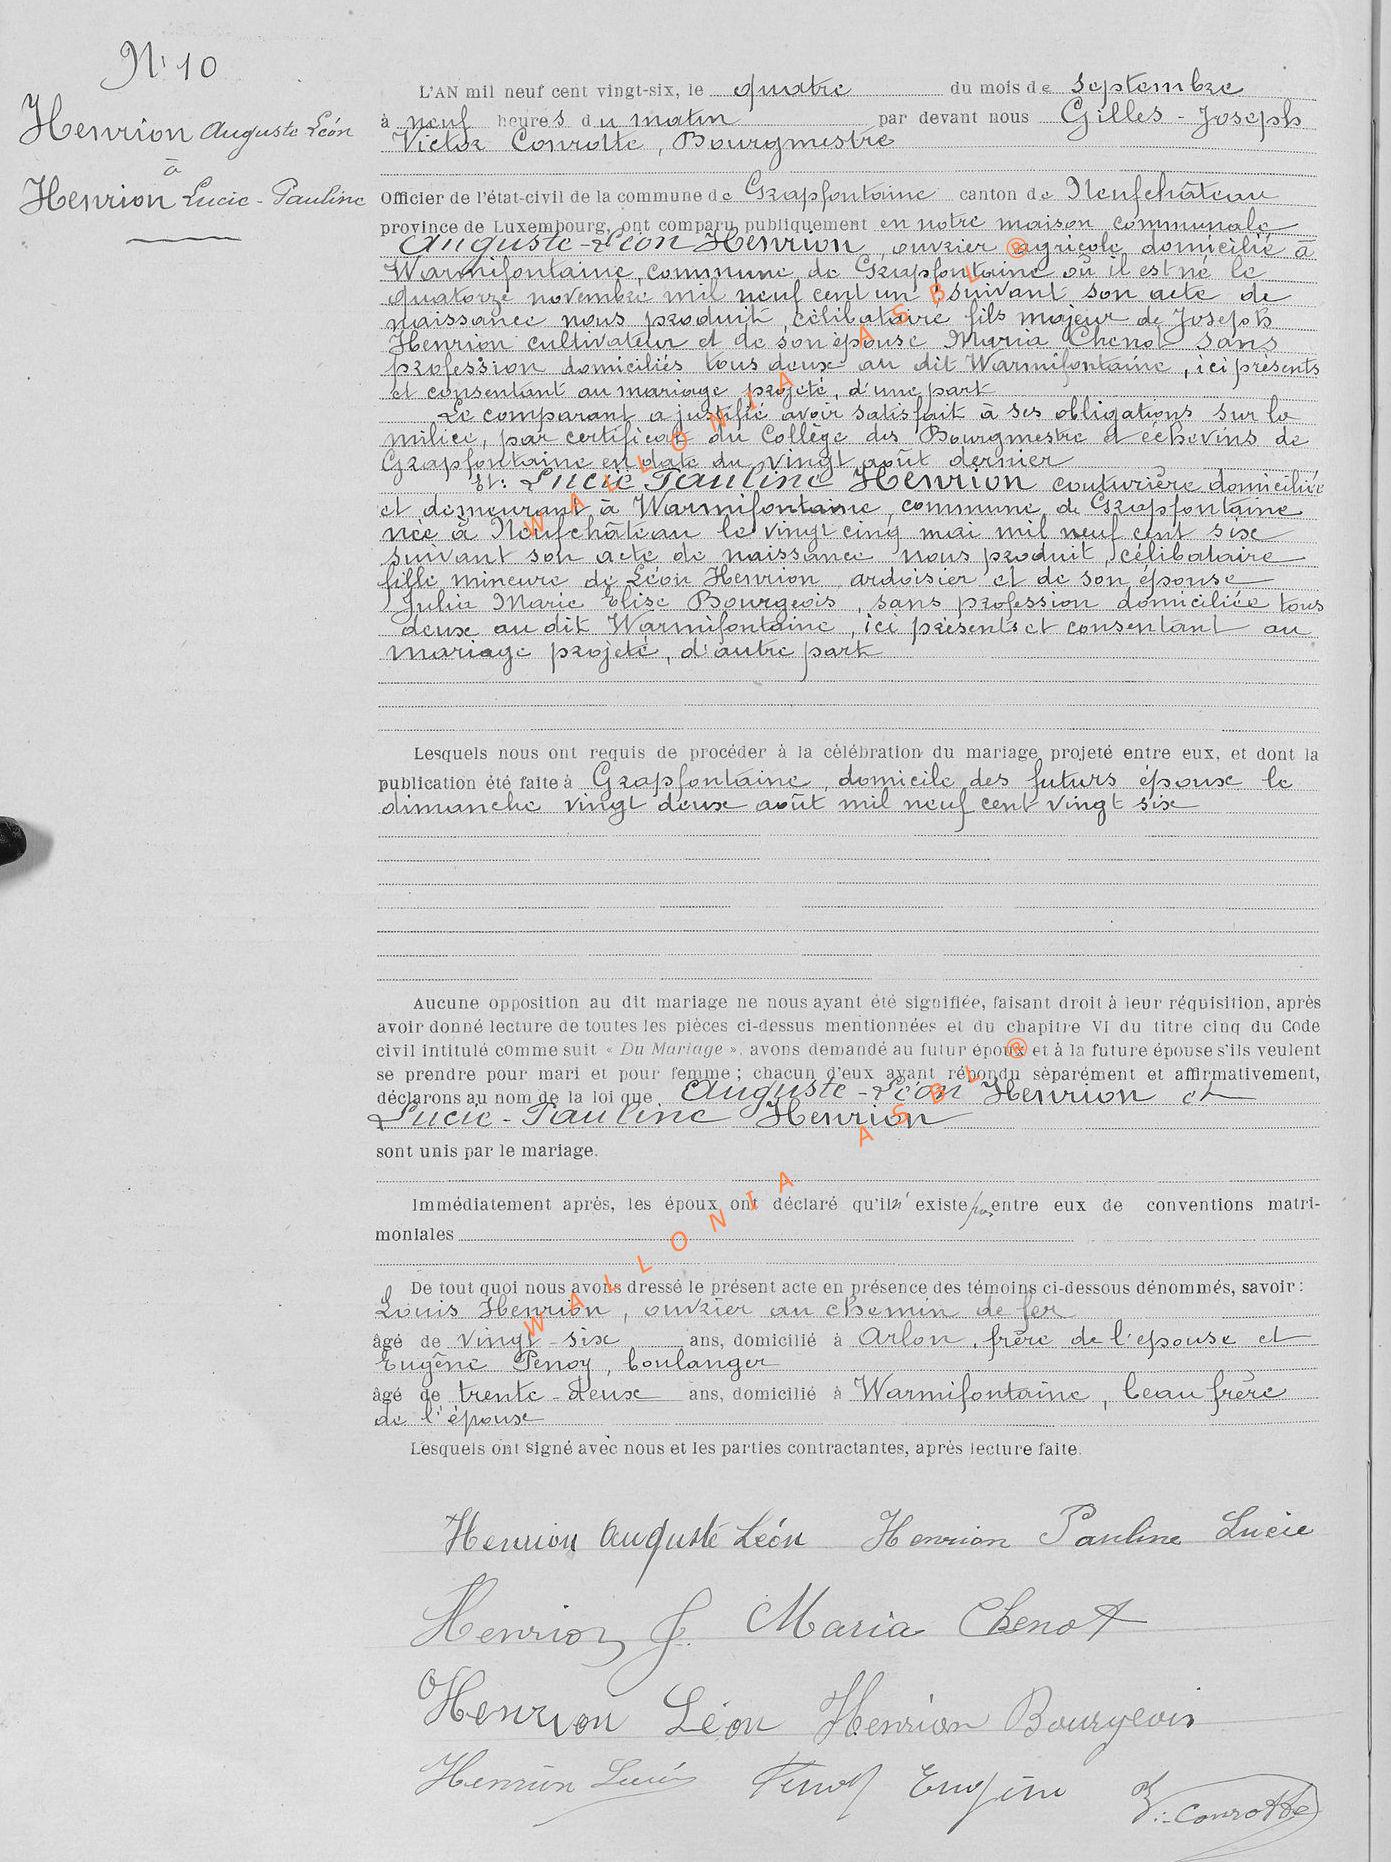 N° 10
Henrion Auguste Léon
à
Henrion Lucie-Pauline
L'AN mil neuf cent vingt-six, le quatre du mois de septembre
à neuf heures du matin par devant nous Gilles-Joseph
Victor Conrotte, Bourgmestre
Officier de l'état-civil de la commune de Grapfontaine canton de Neufchâteau
province de Luxembourg, ont comparu publiquement en notre maison communale
Auguste-Léon Henrion, ouvrier agricole domicilié à
Warmifontaine, commune de Grapfontaine où il est né le
quatorze novembre mil neuf cent un suivant son acte de
naissance nous produit, célibataire fils majeur de Joseph
Henrion cultivateur et de son épouse Maria Chenot sans
profession domiciliés tous deux au dit Warmifontaine, ici présents
et consentant au mariage projeté, d'une part
Le comparant a justifié avoir satisfait à ses obligations sur la
milice, par certificat du Collège des Bourgmestre et échevins de
Grapfontaine en date du vingt août dernier
Et: Lucie Pauline Henrion couturière domiciliée
et demeurant à Warmifontaine, commune de Grapfontaine
née à Neufchâteau le vingt cinq mai mil neuf cent six
suivant son acte de naissance nous produit, célibataire
fille mineure de Léon Henrion ardoisier et de son épouse
Julie Marie Elise Bourgeois, sans profession domiciliée tous
deux au dit Warmifontaine, ici présents et consentant au
mariage projeté, d'autre part
Lesquels nous ont requis de procéder à la célébration du mariage projeté entre eux, et dont la
publication été faite à Grapfontaine, domicile des futurs époux le
dimanche vingt deux août mil neuf cent vingt six
Aucune opposition au dit mariage ne nous ayant été signifiée, faisant droit à leur réquisition, après
avoir donné lecture de toutes les pièces ci-dessus mentionnées et du chapitre VI du titre cinq du Code
civil intitulé comme suit « Du Mariage », avons demandé au futur époux et à la future épouse s'ils veulent
se prendre pour mari et pour femme ; chacun d'eux ayant répondu séparément et affirmativement,
déclarons au nom de la loi que Auguste-Léon Henrion et
Lucie-Pauline Henrion
sont unis par le mariage.
Immédiatement après, les époux ont déclaré qu'il n'existe pas entre eux de conventions matri-
moniales
De tout quoi nous avons dressé le présent acte en présence des témoins ci-dessous dénommés, savoir :
Louis Henrion, ouvrier au chemin de fer
âgé de vingt-six ans, domicilié à Arlon, frère de l'epouse et
Eugène Penoy, boulanger
âgé de trente-deux ans, domicilié à Warmifontaine, beau frère
de l'épouse
Lesquels ont signé avec nous et les parties contractantes, après lecture faite.
Henrion Auguste Léon Henrion Pauline Lucie
Henrion J. Maria Chenot
Henrion Léon Henrion Bourgeois
Henrion Louis Penoy Eugène V. Conrotte
WALLONIA ASBL ®
WALLONIA ASBL ®